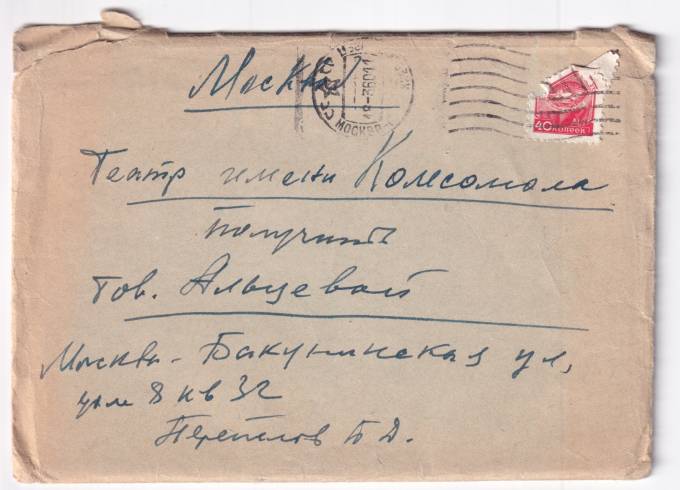 Москва
СССР
МОСКВА
40 КОПЕЕК
Театр имени Комсомола
Получить
тов. Альцевой
Москва - Бакунинская ул,
дом 8 кв 32
Б Д.